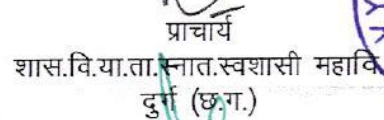 प्राचार्य
शास.वि.या.ता.स्नात.स्वशासी महावि
दुर्ग (छ.ग.)